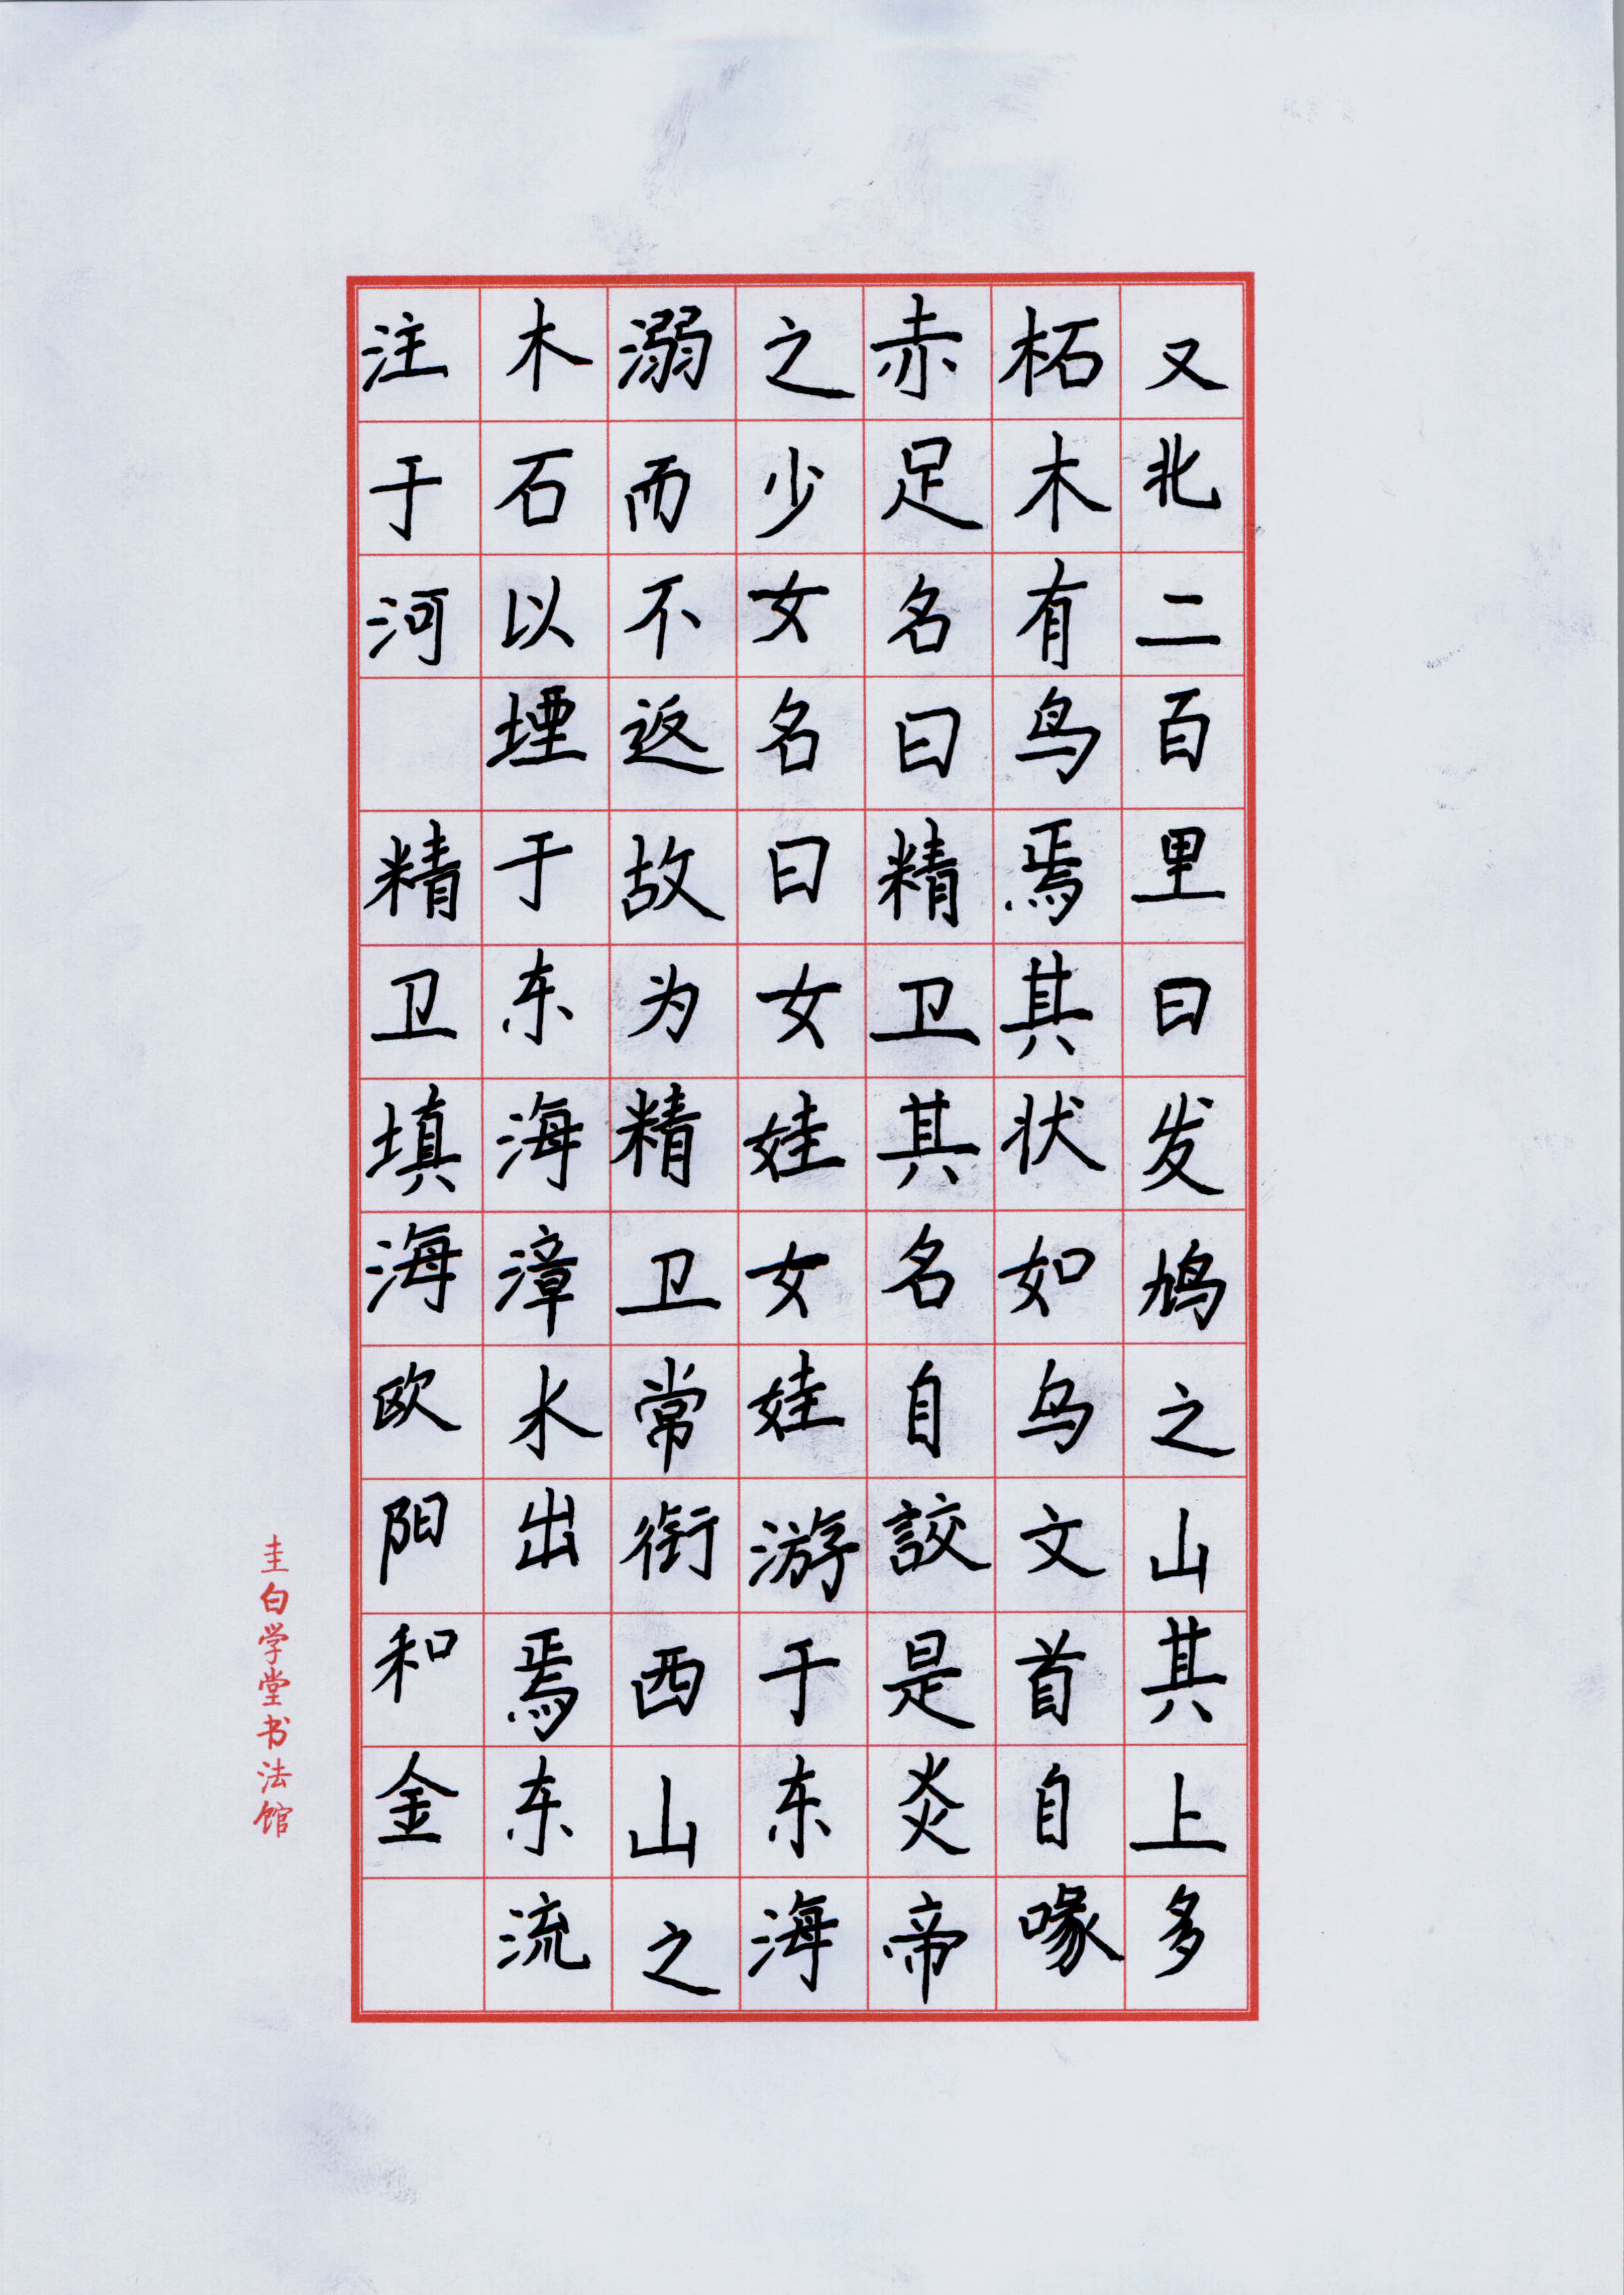 又北二百里曰发鸠之山其上多
柘木有鸟焉其状如乌文首自喙
赤足名曰精卫其名自詨是炎帝
之少女名曰女娃女娃游于东海
溺而不返故为精卫常衔西山之
木石以堙于东海漳水出焉东流
注于河 精卫填海欧阳和金
圭白学堂书法馆